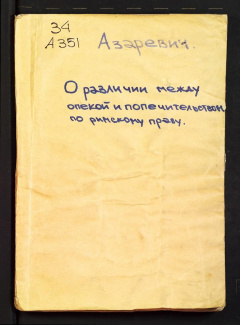 34
А351 Азаревич.
О различии между
опекой и попечительством
по римскому праву.